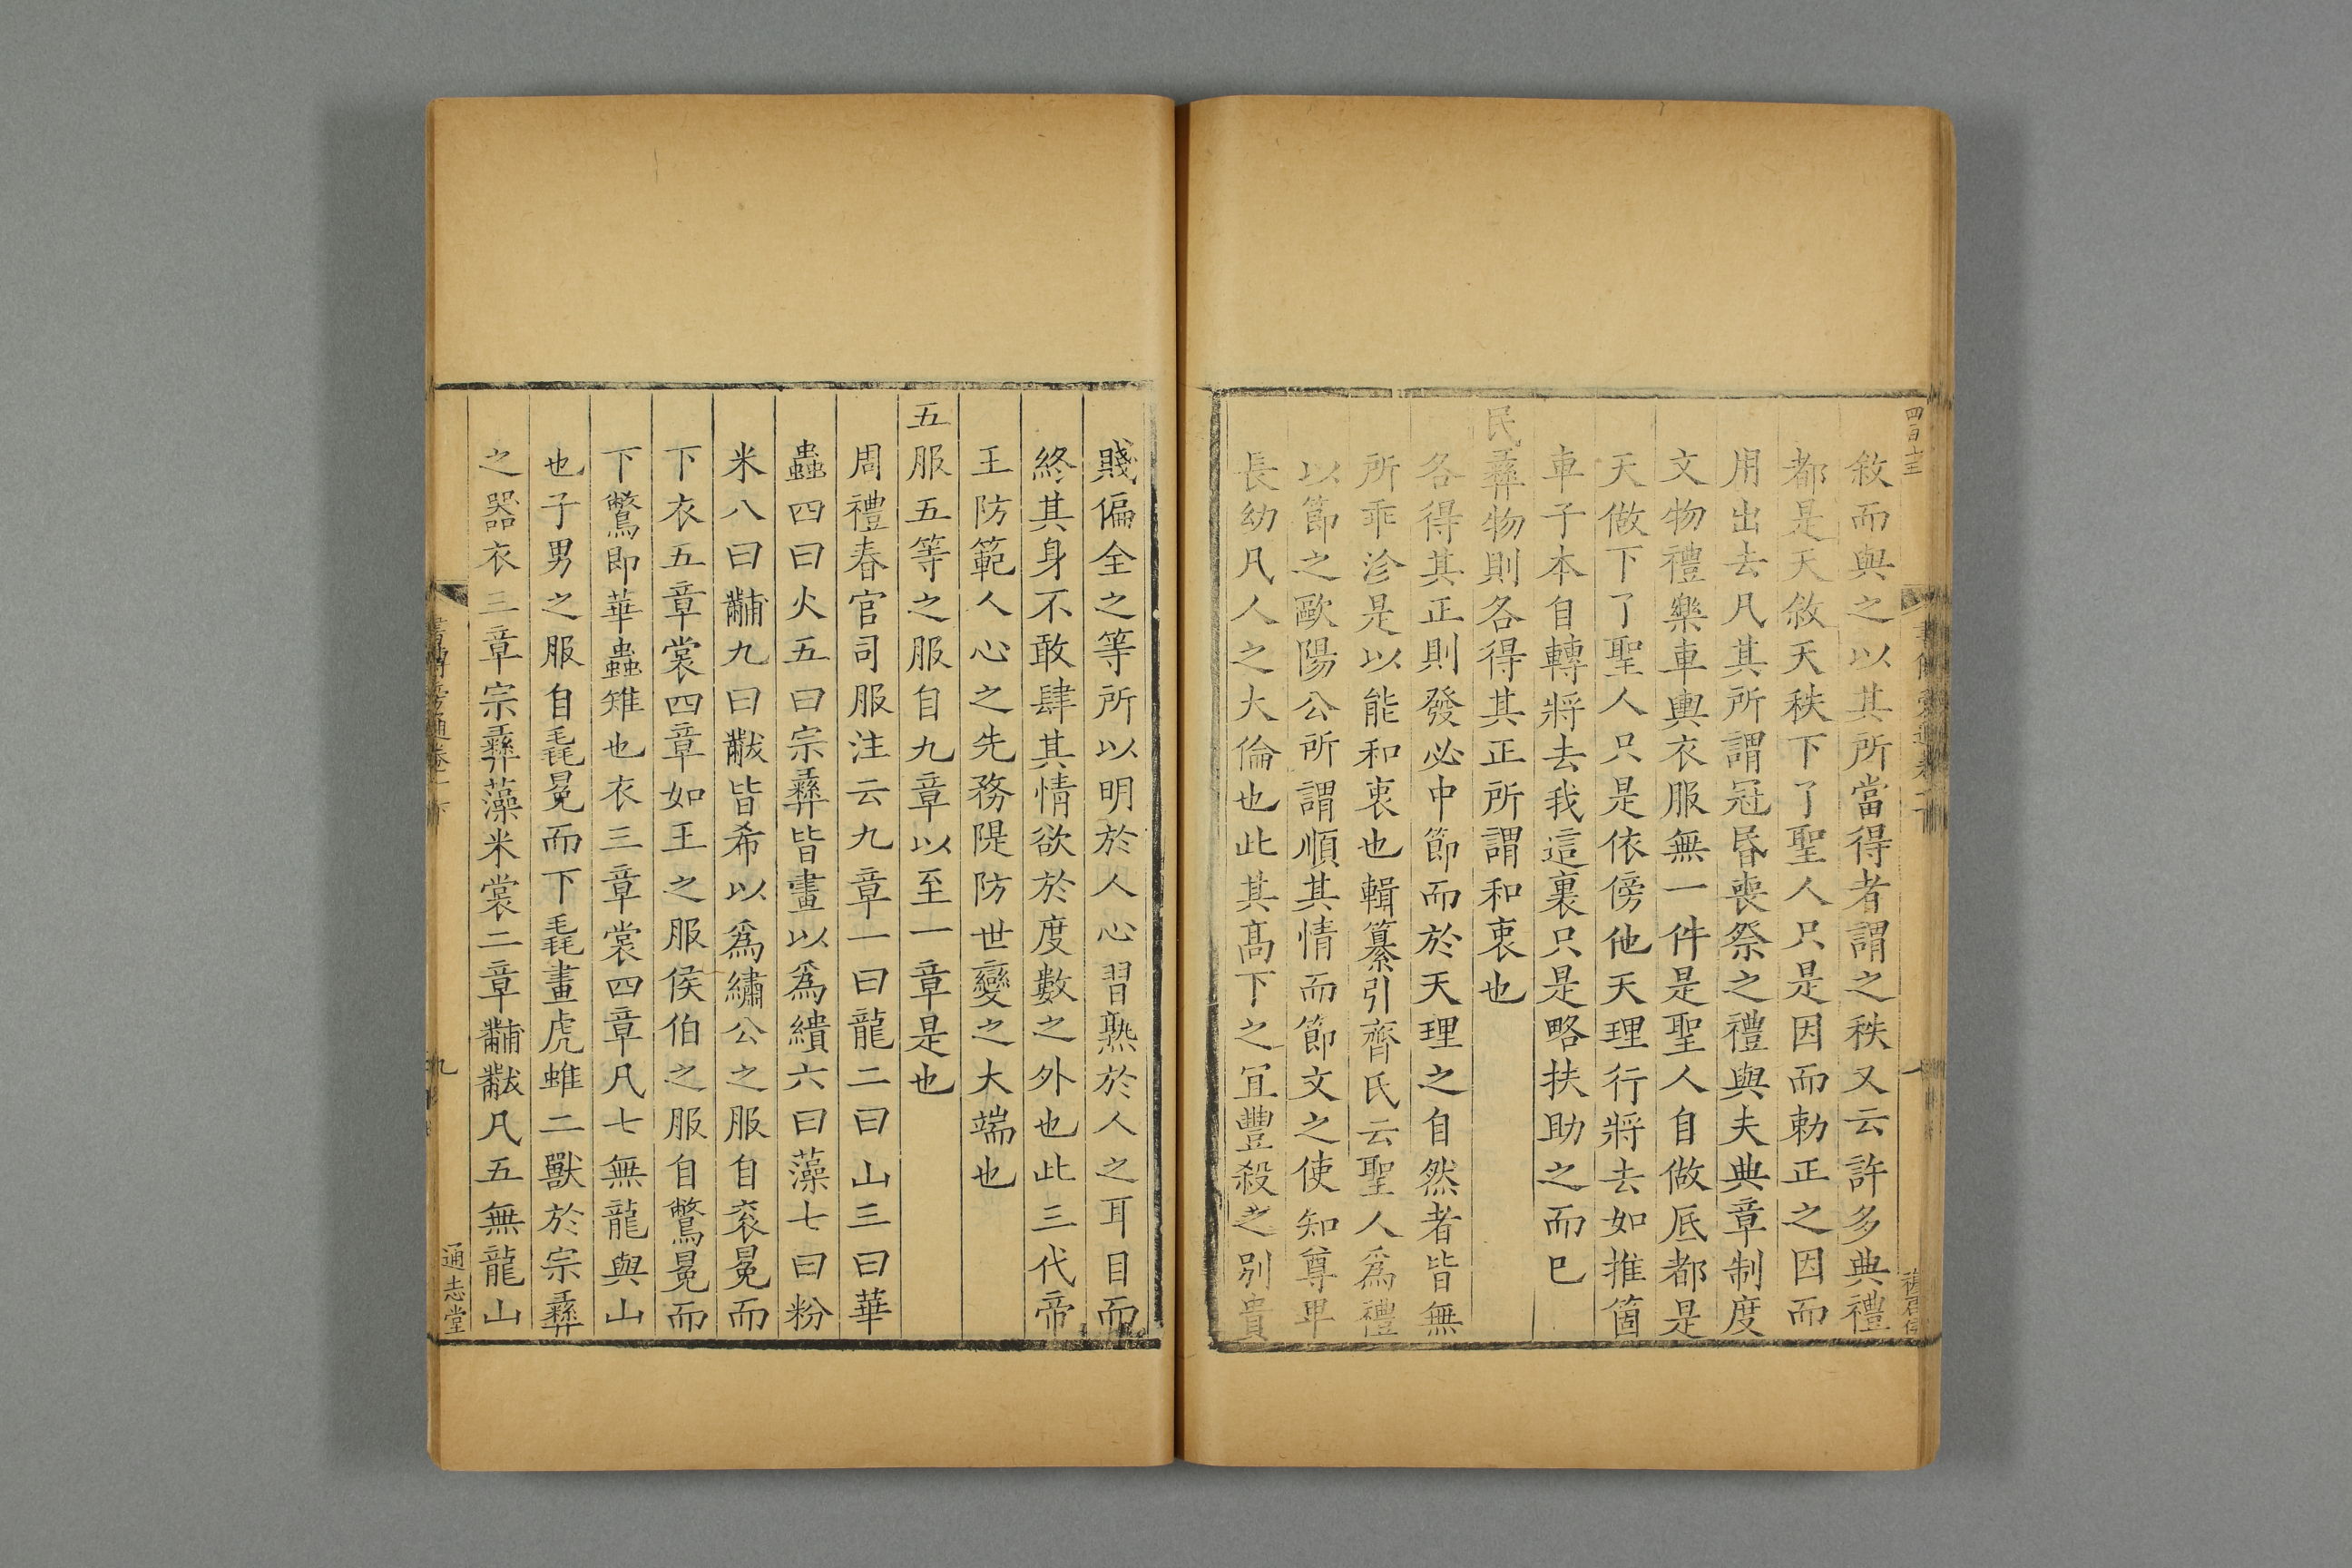 敘而與之以其所當得者謂之秩又云許多典禮
都是天敘天秩下了聖人只是因而勅正之因而
用出去凡其所謂冠昏喪祭之禮與夫典章制度
文物禮樂車輿衣服無一件是聖人自做底都是
天做下了聖人只是依傍他天理行將去如推箇
車子本自轉將去我這裏只是略扶助之而已
民彞物則各得其正所謂和衷也
各得其正則發必中節而於天理之自然者皆無
所乖沴是以能和衷也輯纂引齊氏云聖人爲禮
以節之歐陽公所謂順其情而節文之使知尊卑
長幼凡人之大倫也此其髙下之冝豐殺之别貴
賤偏全之等所以明於人心習熟於人之耳目而
終其身不敢肆其情欲於度數之外也此三代帝
王防範人心之先務隄防世變之大端也
五服五等之服自九章以至一章是也
周禮春官司服注云九章一曰龍二曰山三曰華
蟲四曰火五曰宗彞皆畫以爲繢六曰藻七曰粉
米八曰黼九曰黻皆希以爲繡公之服自衮冕而
下衣五章裳四章如王之服侯伯之服自鷩冕而
下鷩即華蟲雉也衣三章裳四章凡七無龍與山
也子男之服自毳冕而下毳畫虎蜼二獸於宗彞
之器衣三章宗彞藻米裳二章黼黻凡五無龍山
書傳旁通卷一下
九
通志堂